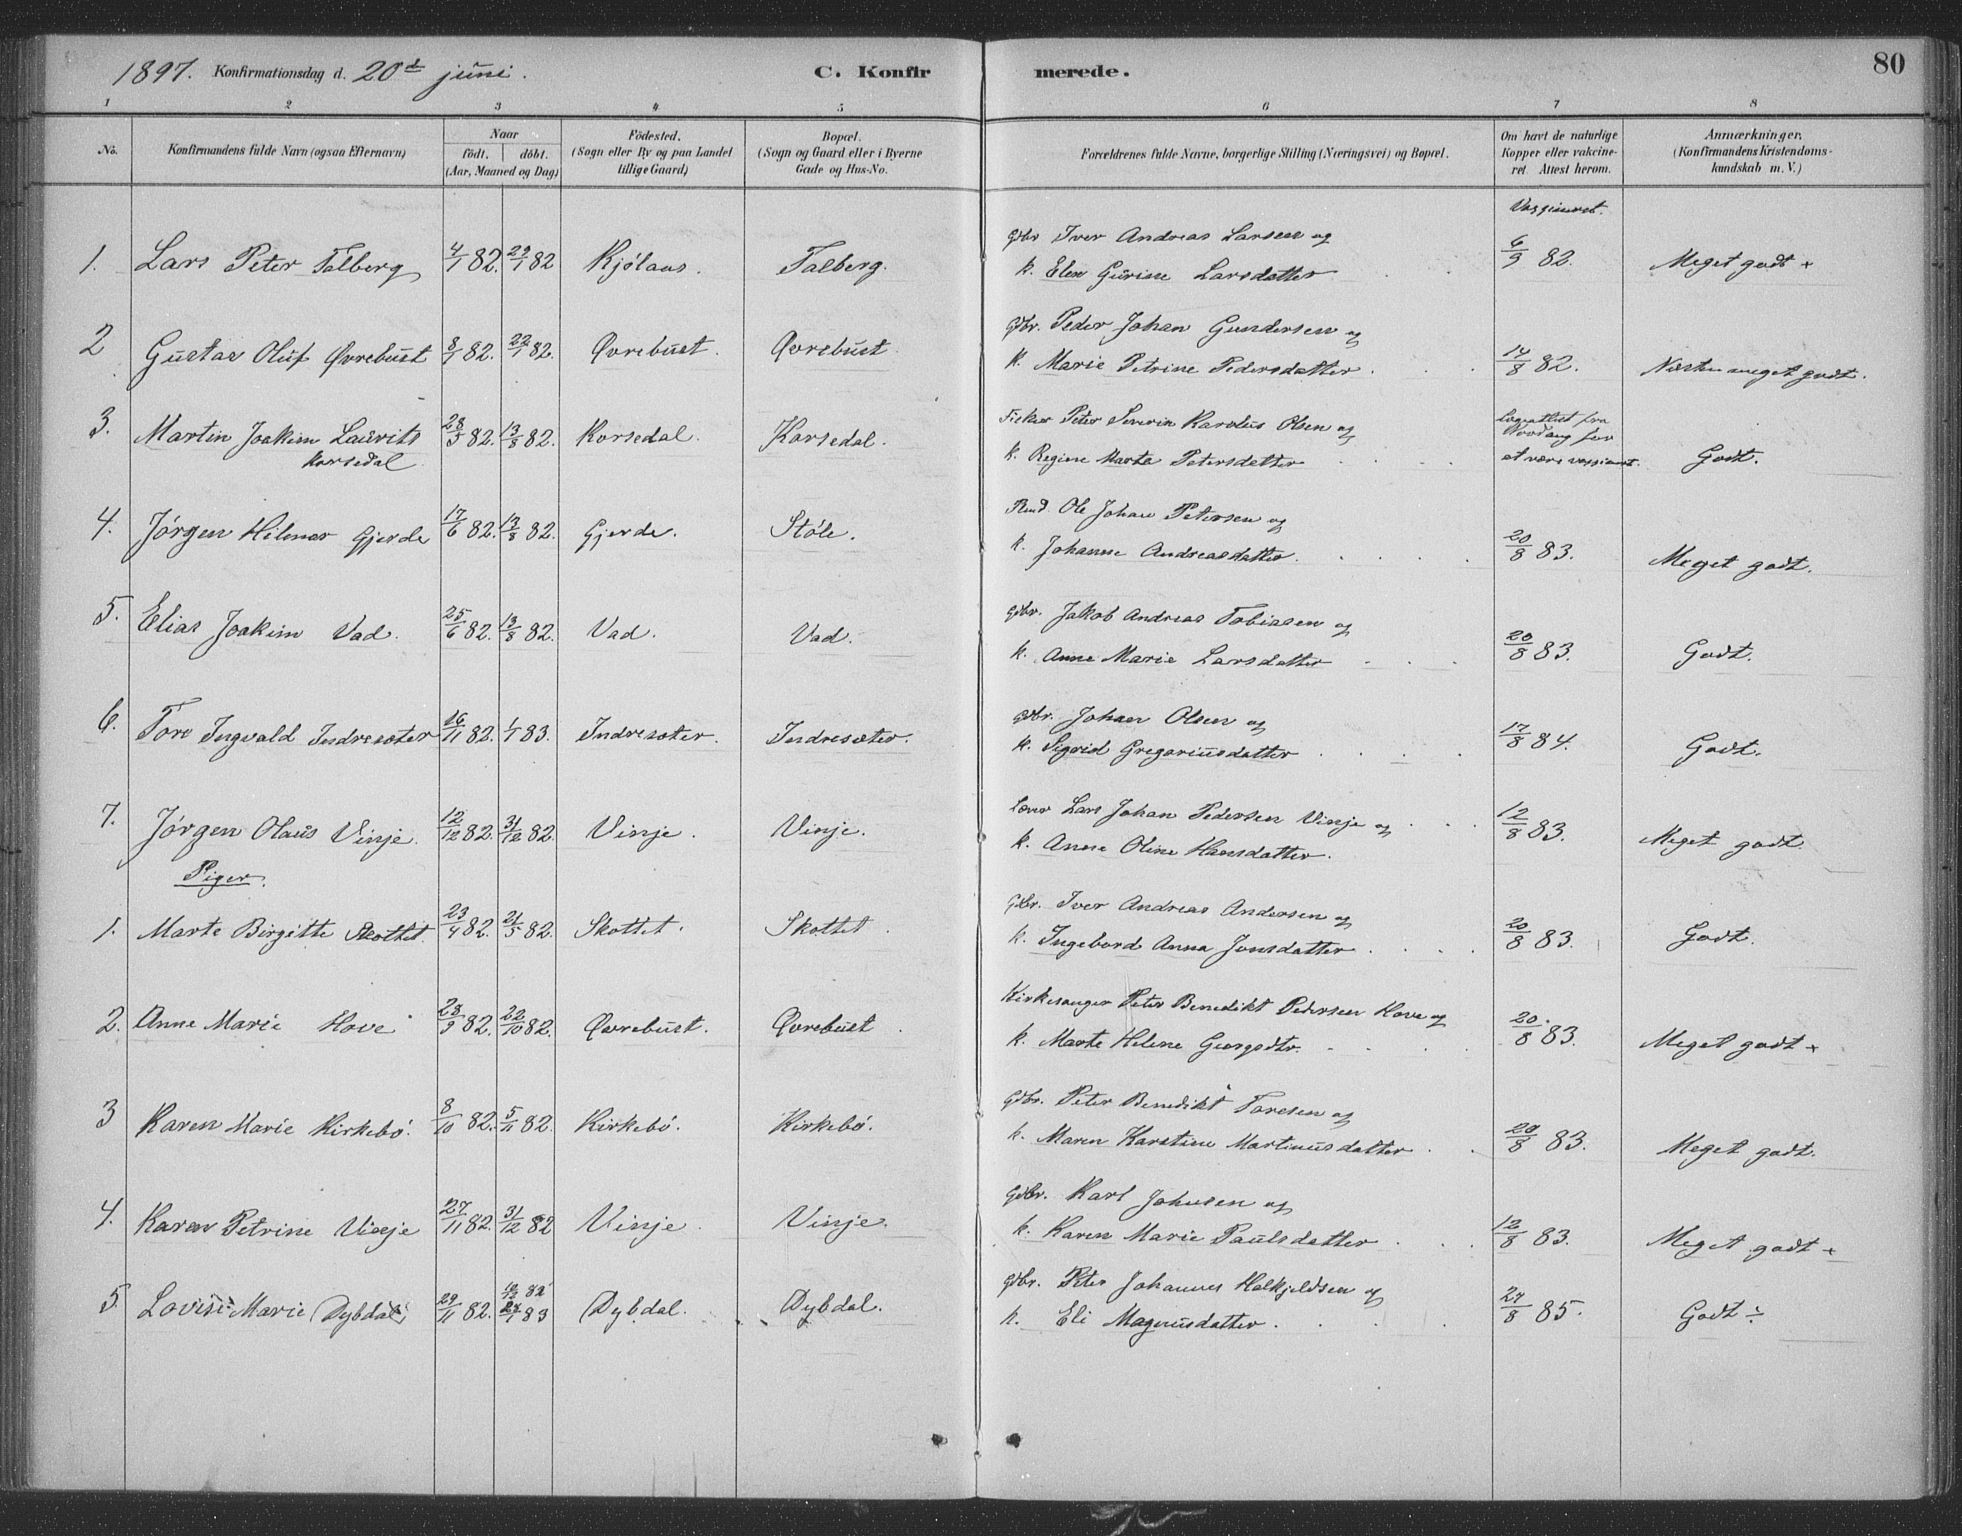 1897. Konfirmationsdag d. 20de juni. C. Konfirmerede. 80
1 2 3 4 5 6 7 8
No. Konfirmandens fulde Navn (ogsaa Efternavn) Naar födt. döbt. (Aar, Maaned og Dag) Födested. (Sogn eller By og paa Landet tillige Gaard) Bopæl. (Sogn og Gaard eller i Byerne Gade og Hus-No. Forældrenes fulde Navne, borgerlige Stilling (Næringsvei) og Bopæl. Om havt de naturlige Kopper eller vakcineret. Attest herom. Anmærkninger. (Konfirmandens Kristendomskundskab m. V.)
1. Lars Peter Talberg 4/1 82. 29/1 82 Kjölaas. Talberg. Gbr Iver Andreas Larsen og
k. Elen Gurine Larsdatter 6/9 82. Meget godt +
2 Gustav Oluf Øvrebust 8/1 82. 22/1 82. Øvrebust. Øvrebust Gbr. Peder Johan Gundersen og
k. Marie Petrine Pedersdatter. 14/8 82. Næsten meget godt.
3. Martin Joakim Laurits Korsedal 28/5 82. 13/8 82. Korsedal. Korsedal. Fisker Peter Severin Karolus Olsen og
k. Regine Marta Petersdatter Godt.
4. Jörgen Hilmar Gjerde 17/6 82. 13/8 82. Gjerde. Stöle. Ole Johan Petersen og
k. Johanne Andreasdatter. 20/8 83. Meget godt.
5. Elias Joakim Vad. 25/6 82. 13/8 82. Vad. Vad. Gbr. Jakob Andreas Tobiassen og
k. Anne Marie Larsdatter 20/8 83. Godt.
6. Tore Ingvald Indresæter 16/11 82. 1/1 83. Indresæter. Indresæter. Gbr. Johan Olsen og
k. Sigrid Gregoriusdatter 17/8 84. Godt.
7. Jörgen Olaus Vinje. 12/12 82. 31/12 82. Vinje. Vinje. Lærer Lars Johan Pedersen Vinje og
k. Anne Oline Hansdatter. 12/8 83. Meget godt.
Piger.
1. Marte Birgitte Skottet. 23/4 82. 21/5 82. Skottet. Skottet. Gbr. Iver Andreas Andersen og
k. Ingebord Anna Jonsdatter. 20/8 83. Godt.
2. Anne Marie Hove 28/9 82. 22/10 82. Øvrebust. Øvrebust. Kirkesanger Peter Benedikt Pedersen Hove og
k. Marte Helene Georgsdtr. 20/8 83. Meget godt +
3 Karen Marie Kirkebö. 8/10 82. 5/11 82. Kirkebö. Kirkebö. Gbr. Peter Benedikt Toresen og
k. Maren Karstine Martinusdatter. 20/8 83. Meget godt.
4. Karen Petrine Vinje 27/11 82. 31/12 82 Vinje. Vinje. Gbr. Karl Johnsen og
k. Karen Marie Paulsdatter 12/8 83. Meget godt +
5. Lovise Marie Dybdal 29/11 82. 83 Dybdal. Dybdal. Gbr. Peter Johannes Halkjeldsen og
k. Eli Magnusdatter. 24/8 85. Godt ÷